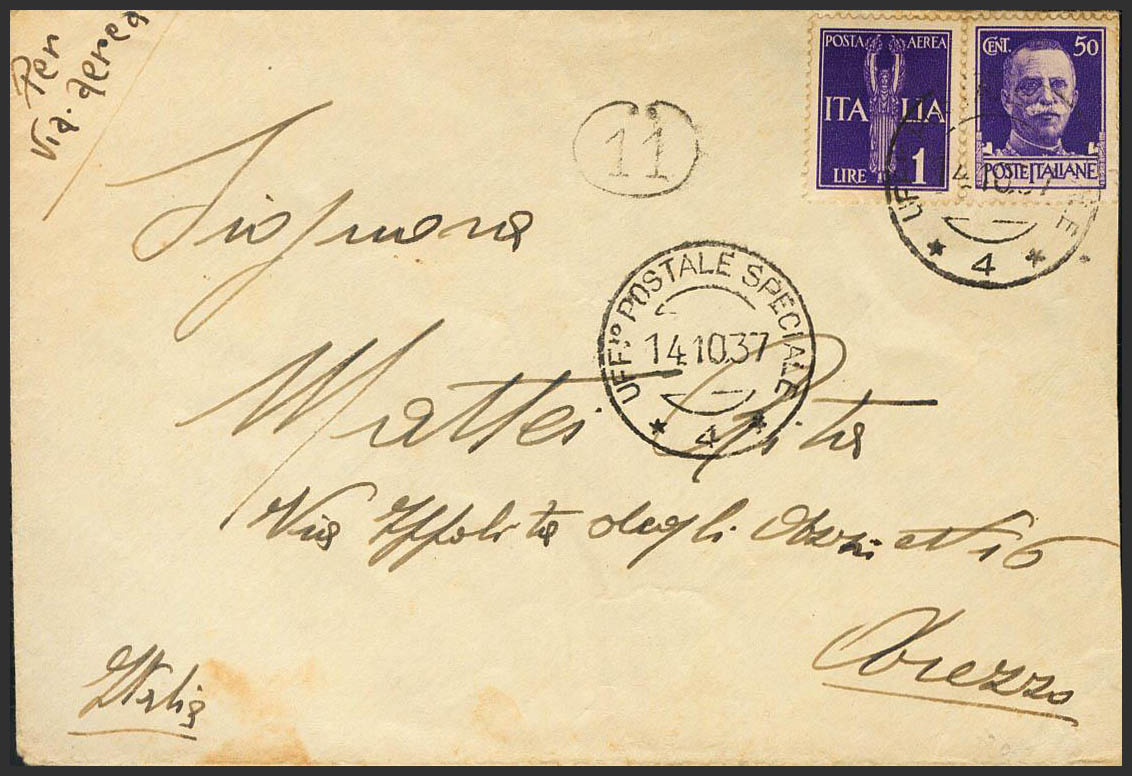 Per
via aerea
POSTA AEREA
ITALIA
LIRE 1
CENT. 50
POSTE ITALIANE
14.10.37
* 4 *
11
Signora
UFF.º POSTALE SPECIALE
14.10.37
* 4 *
Mattei Rita
Via Ippolita degli Azzi N 16
Arezzo
Italia